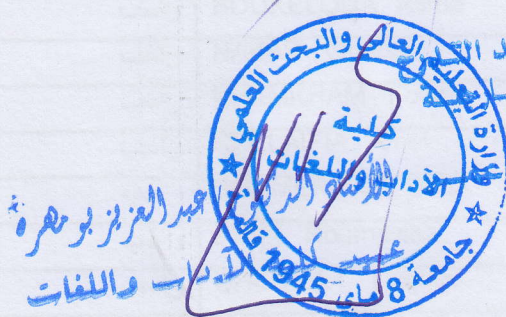 وزارة التعليم العالي والبحث العلمي
كلية
الآداب واللغات
جامعة 8 ماي 1945 قالمة
الأستاذ الدكتور عبد العزيز بومهرة
عميد كلية الآداب واللغات